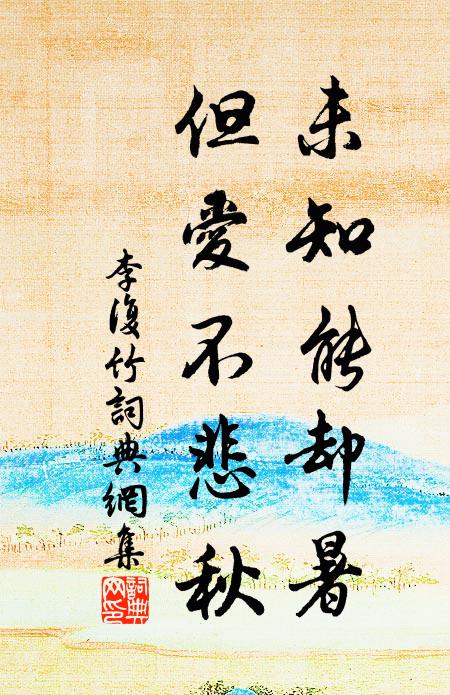 未知能却暑
但愛不悲秋
李復竹詞典網集
詞典網印